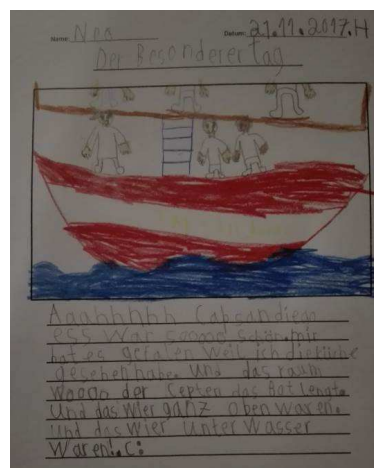 Name: Noa Datum: 21.11.2017.H
Der Besonderer tag
Aaahhhhh
ess war schär. mir
hat es gefalen weil ich die
gesehen habe. und das raum
woooo der Cepten das Bot lengt.
und das wier ganz oben waren.
und das wier unter wasser
waren!.c: